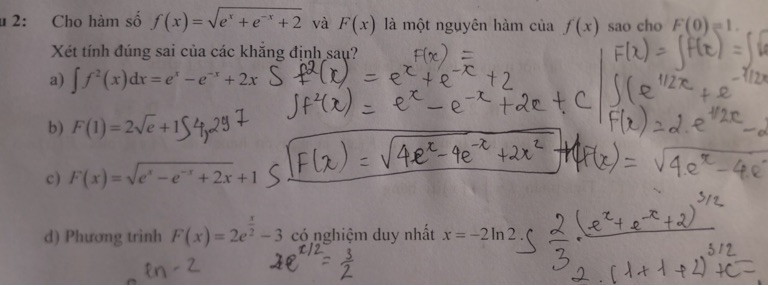 u 2: Cho hàm số f(x) = √(eˣ + e⁻ˣ + 2) và F(x) là một nguyên hàm của f(x) sao cho F(0) = 1.
Xét tính đúng sai của các khẳng định sau? F(x) = F(x) = ∫f(x) = ∫
a) ∫f²(x)dx = eˣ − e⁻ˣ + 2x S f²(x) = eˣ + e⁻ˣ + 2
∫f²(x) = eˣ − e⁻ˣ + 2x + C ∫(e^{1/2x} + e^{-1/2x}
b) F(1) = 2√e + 1 S 4,297 F(x) = 2.e^{1/2x} − 2
c) F(x) = √(eˣ − e⁻ˣ + 2x) + 1 S F(x) = √(4eˣ − 4e⁻ˣ + 2x²) F(x) = √(4eˣ − 4e
d) Phương trình F(x) = 2e^{x/2} − 3 có nghiệm duy nhất x = −2ln2. S 2/3 . (eˣ + e⁻ˣ + 2)^{3/2}
ln -2 2e^{x/2} = 3/2 2 . (1+1+2)^{3/2} + C =